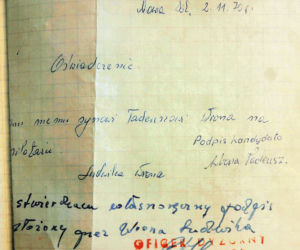 Nowa Sól, 2.11.70r.
Oświadczenie
memu synowi Tadeuszowi Wrona na
Podpis kandydata
Wrona Tadeusz.
Ludwika Wrona
stwierdzam własnoręczny podpis
złożony przez Wrona Ludwika
OFICER DYŻURNY